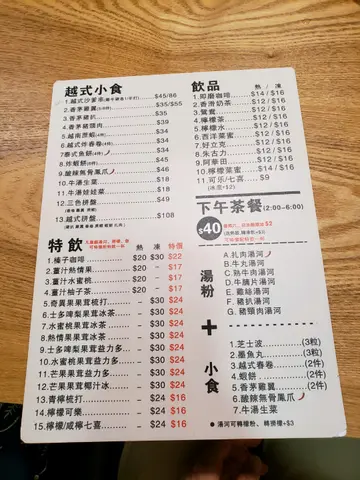 越式小食
1.越式沙爹串(雞牛豬各1/半打) $45/86
2.香茅雞翼 $35/$55
3.香茅豬扒 $35
4.香茅豬頸肉 $39
5.越南蔗蝦(4件) $34
6.越式炸春卷(4件) $34
7.泰式魚餅(4件) $34
8.炸蝦餅(4件) $45
9.酸辣無骨鳳爪 $34
10.牛滑生菜 $18
11.牛滑娃娃菜 $46
12.三色拼盤 $34
13.越式拼盤 $108
飲品 熱 / 凍
1.即磨咖啡 $14 / $16
2.香滑奶茶 $12 / $16
3.鴛鴦 $12 / $16
4.檸檬茶 $12 / $16
5.檸檬水 $12 / $16
6.西洋菜蜜 $12 / $16
7.好立克 $12 / $16
8.朱古力 $12 / $16
9.阿華田 $12 / $16
10.檸檬菜蜜 $14 / $16
11.可乐/七喜 $9
(冰度+$2)
特飲 熱 凍 特價
1.榛子咖啡 $20 $30 $22
2.薑汁熱情果 $20 - $17
3.薑汁水蜜桃 $20 - $17
4.薑汁柚子茶 $20 - $17
5.奇異果果茸梳打 - $30 $24
6.士多啤梨果茸冰茶 - $30 $24
7.水蜜桃果茸冰茶 - $30 $24
8.熱情果果茸冰茶 - $30 $24
9.士多啤梨果茸益力多 - $30 $24
10.水蜜桃果茸益力多 - $30 $24
11.芒果果茸益力多 - $30 $24
12.芒果果茸椰汁冰 - $30 $24
13.青檸梳打 - $24 $16
14.檸檬可樂 - $24 $16
15.檸檬/咸檸七喜 - $24 $16
下午茶餐(2:00-6:00)
$40
湯粉
A.扎肉湯河
B.牛丸湯河
C.熟牛肉湯河
D.牛腩片湯河
E.雞絲湯河
F.豬扒湯河
G.豬頸肉湯河
+
小食
1.芝士波 (3粒)
2.墨魚丸 (3粒)
3.越式春卷 (2件)
4.蝦餅 (2件)
5.香茅雞翼 (2件)
6.酸辣無骨鳳爪
7.牛滑生菜
● 湯河可轉檬粉、轉撈檬+$3